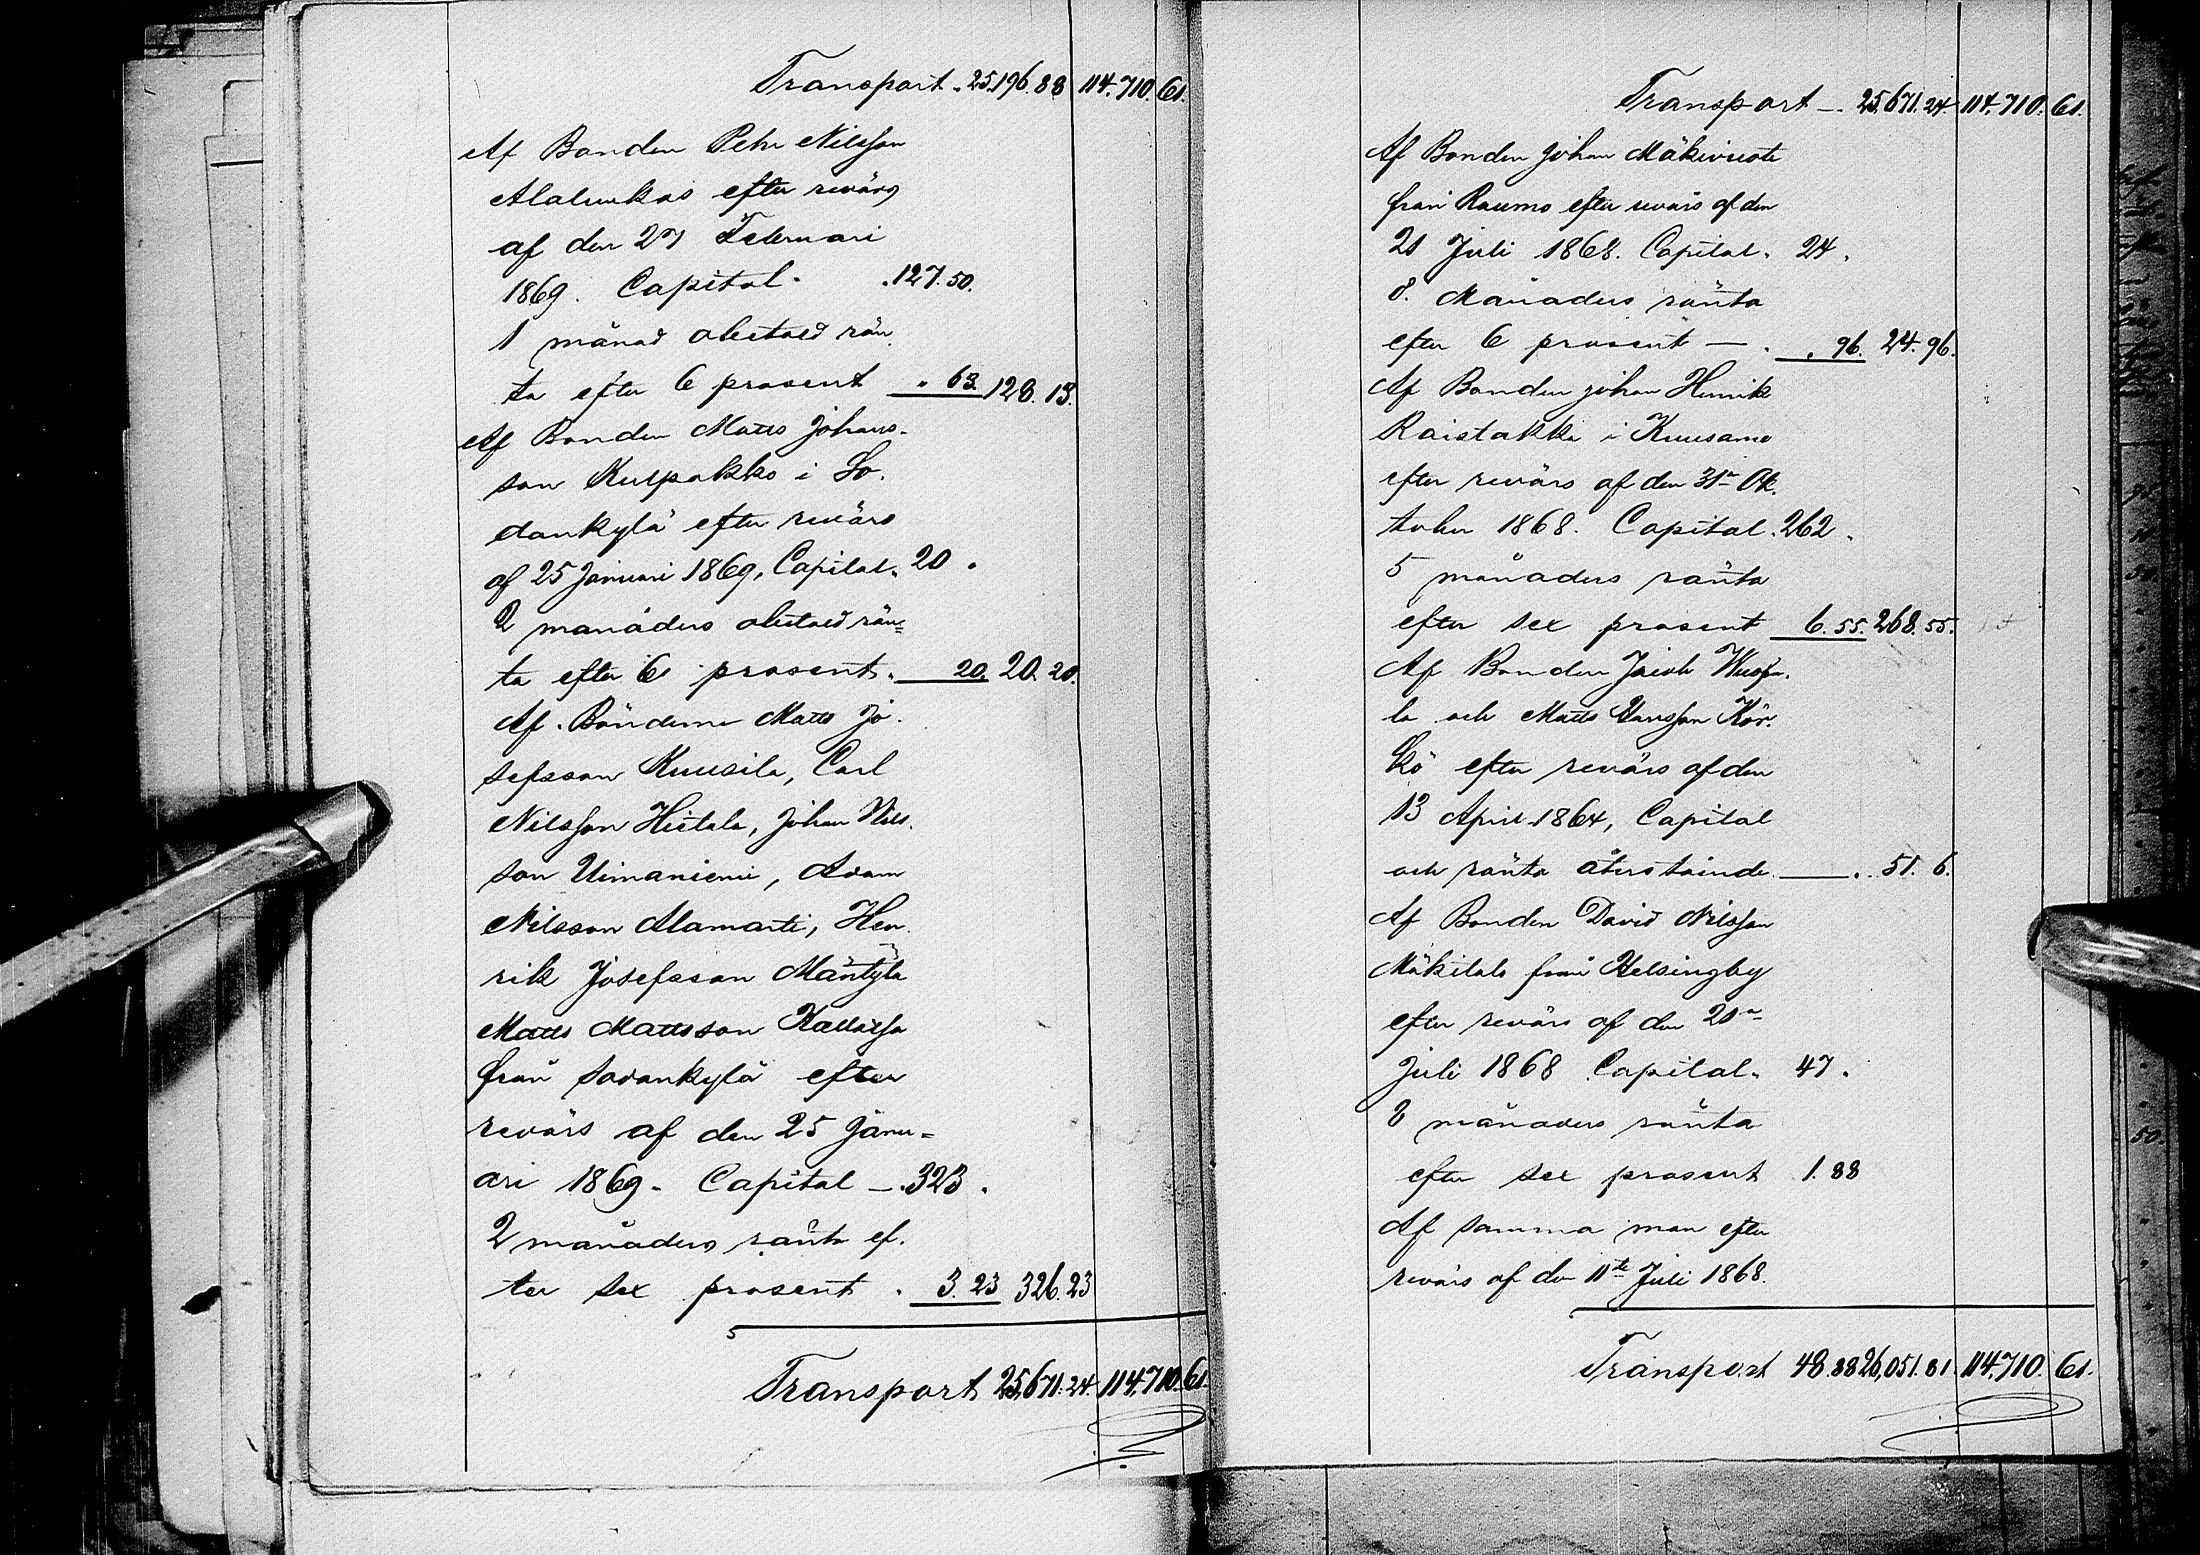 Transport. 25,196.88 114,710.61.
Af Bonden Pehr Nilsson
Alaluukas efter revärs
af den 27 Februari
1869. Capital. .127.50.
1 månad obetald rän
ta efter 6 prosent " 63. 128.13.
Af Bonden Matts Johans-
son Kulpakko i So-
dankylä efter revärs
af 25 Januari 1869, Capital. 20 "
2 månaders obetald rän=
ta efter 6 prosent. 20. 20.20.
Af Bönderne Matts Jo-
sefsson Kuusila, Carl
Nilsson Hietala, Johan Nils-
son Uimaniemi, Adam
Nilsson Alamarti, Hen-
rik Josefsson Mäntylä
Matts Mattsson
från Sodankylä efter
revärs af den 25 Janu=
ari 1869. Capital — .323.
2 månaders ränta ef-
ter sex prosent . 3.23 326.23
Transport 25,671.24. 114,710.61.
Transport — 25,671.24. 114,710.61.
Af Bonden Johan Mäkivuoti
från Raumo efter revärs af den
21 Juli 1868. Capital. 24.
8. Månaders ränta
efter 6 prosent — . " 96. 24.96.
Af Bonden Johan Henrik
Raistakka i Kuusamo
efter revärs af den 31a Ok-
tober 1868. Capital. 262.
5 månaders ränta
efter sex prosent 6.55. 268.55.
Af Bonden Jacob
la och Matts Hansson Kör-
kö efter revärs af den
13 April 1864, Capital
och ränta återstående — . 51.6.
Af Bonden David Nilsson
Mäkitalo från Helsingby
efter revärs af den 21a
Juli 1868 Capital. 47.
8 månaders ränta
efter sex prosent 1.88
Af samma man efter
revärs af den 11te Juli 1868.
Transport 48.88 26,051.81. 114,710.61.